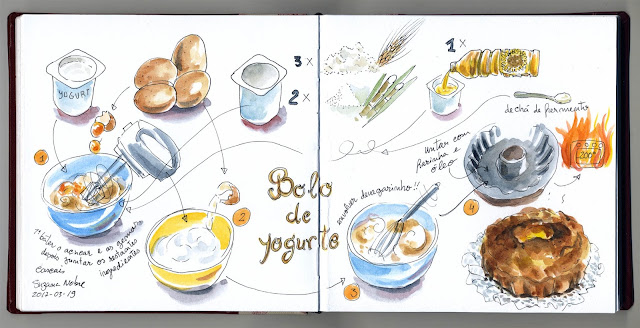 YOGURT
3 x
2 x
1
2
Bolo
de
yogurte
1º bater o açucar e as gemas
depois juntar os restantes
ingredientes
Cascais
Suzana Nobre
2017-03-19
1 x
de chá de fermento
untar com
farinha e
óleo
envolver devagarinho!!
3
4